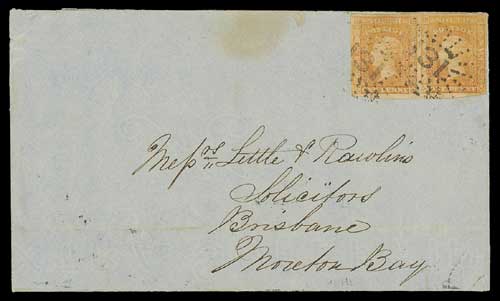 Mesrs Little & Rawlins
Solicitors
Brisbane
Moreton Bay